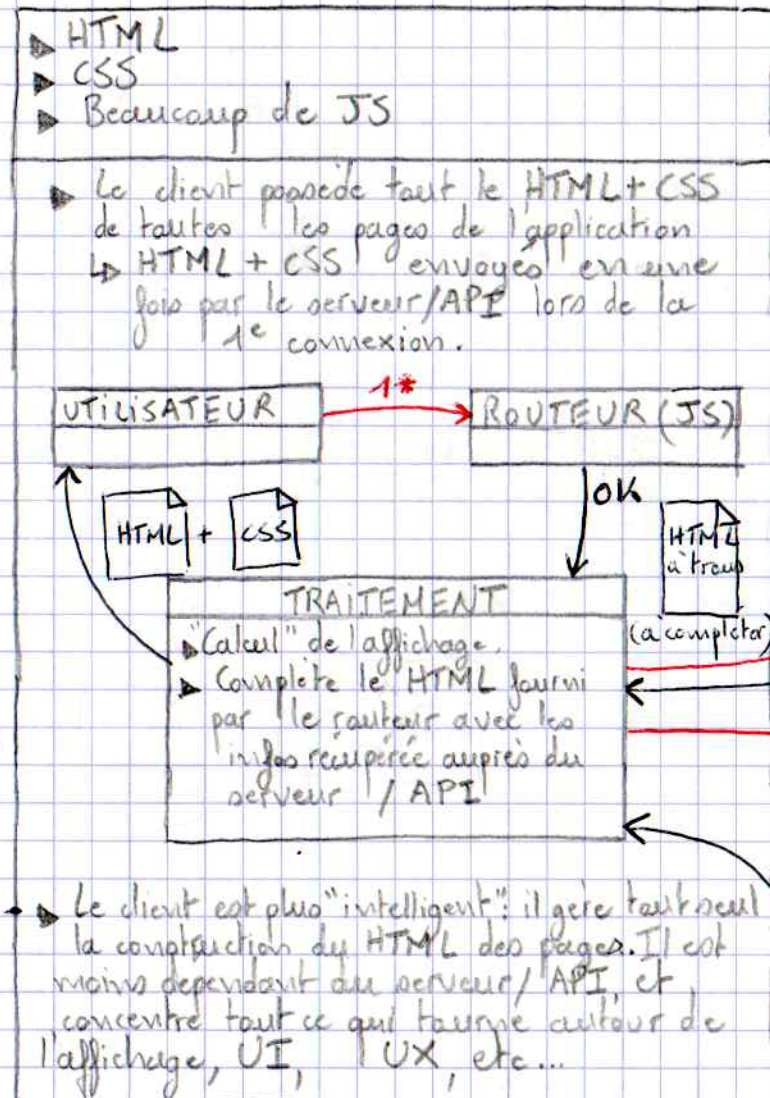 ▶ HTML
▶ CSS
▶ Beaucoup de JS
▶ Le client possède tout le HTML + CSS
de toutes les pages de l'application
↳ HTML + CSS envoyés en une
fois par le serveur/API lors de la
1e connexion.
UTILISATEUR
1*
ROUTEUR (JS)
HTML + CSS
OK
HTML
à trous
(à compléter)
TRAITEMENT
▶ "Calcul" de l'affichage.
▶ Complète le HTML fourni
par le routeur avec les
infos récupérée auprès du
serveur / API
▶ Le client est plus "intelligent": il gère tout seul
la construction du HTML des pages. Il est
moins dépendant du serveur / API, et
concentre tout ce qui tourne autour de
l'affichage, UI, UX, etc...